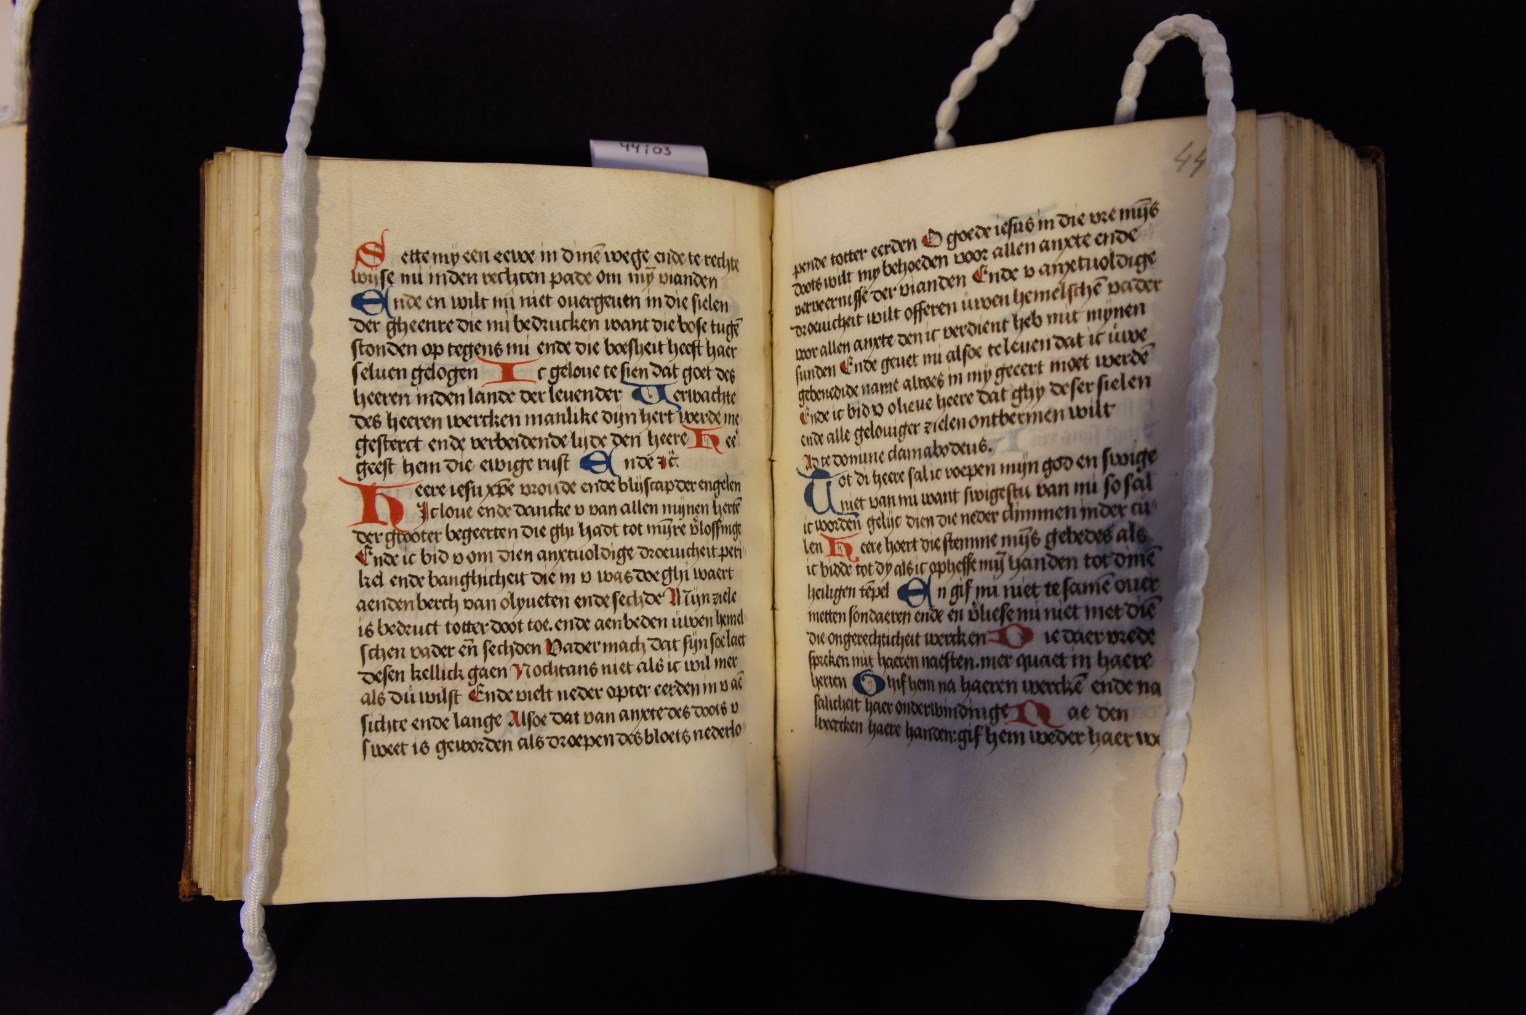 44103
44
Sette my een eewe in dinē wege ende te rechte
wijse mi inden rechten pade om mȳ vianden
Ende en wilt mi niet ouergeuen in die sielen
der gheenre die mi bedrucken want die bose tugē
stonden op tegens mi ende die boesheit heeft haer
seluen gelogen Ic geloue te sien dat goet des
heeren inden lande der leuender Verwachte
des heeren wercken manlike dijn hert werde me
gesterct ende verbeidende lijde den heere Hee
geeft hem die ewige rust Ende zc̄
Heere iesu xp̄e vroude ende blijscap der engelen
Ic loue ende dancke v van allen mijnen hertē
der grooter begeerten die ghi hadt tot mijre v̄lossinge
Ende ic bid v om dien anxtuoldige droeuicheit peri
kel ende banghicheit die in v was doe ghi waert
aenden berch van olyueten ende sechde Mijn ziele
is bedruct totter doot toe. ende aenbeden uwen hemel
schen vader en̄ sechden Vader mach dat sijn soe laet
desen kellick gaen Nochtans niet als ic wil mer
als du wilst Ende vielt neder opter eerden in v aē
sichte ende lange Alsoe dat van anxte des doots v
sweet is geworden als droepen des bloets nederlo
pende totter eerden O goede iesus in die vre mijs
doots wilt my behoeden voor allen anxte ende
verveernisse der vianden Ende v anxtuoldige
droeuicheit wilt offeren uwen hemelschē vader
voor allen anxte den ic verdient heb mit mijnen
sunden Ende geuet mi alsoe te leuen dat ic uwe
gebenedide name altoes in my geeert moet werdē
Ende ic bid v o lieue heere dat ghy deser sielen
ende alle geloviger zielen ontbermen wilt
Ad te domine clamabo deus.
Tot di heere sal ic roepen mijn god en swige
niet van mi want swigestu van mi so sal
ic worden gelijc dien die neder climmen inder cu
len Heere hoert die stemme mijs gebedes als
ic bidde tot dy als ic opheffe mȳ handen tot dinē
heiligen tēpel En gif mi niet te samē ouer
metten sondaeren ende en v̄liese mi niet met diē
die ongerechticheit wercken Die daer vrede
spreken mit haeren naesten. mer quaet in haere
herten Ghif hem na haeren werckē ende na
salicheit haer onderwindinge Nae den
wercken haere handen: gif hem weder haer we